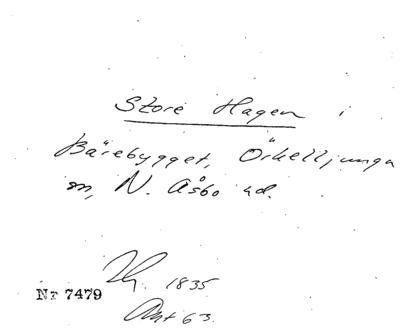 Store Hagen i
Bärebygget, Örkelljunga
sn, N. Åsbo hd.
1835
Nr 7479
Akt 63.